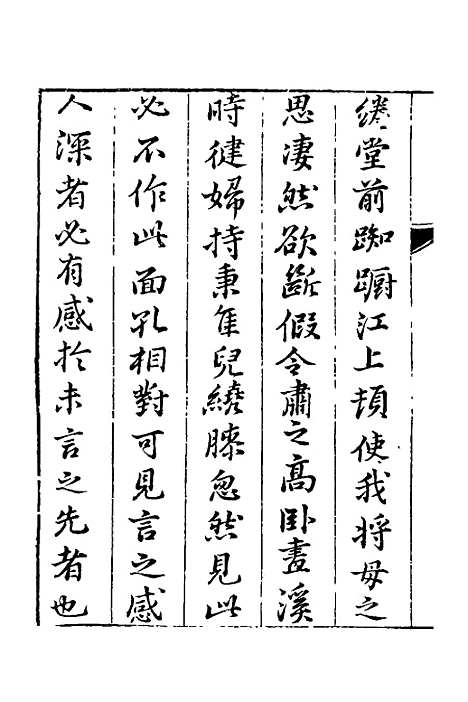 繞堂前踟躕江上頓使我將母之
思淒然欲斷假令肅之高臥畫溪
時健婦持秉隹兒繞膝忽然見此
必不作此面孔相對可見言之感
人深者必有感於未言之先者也